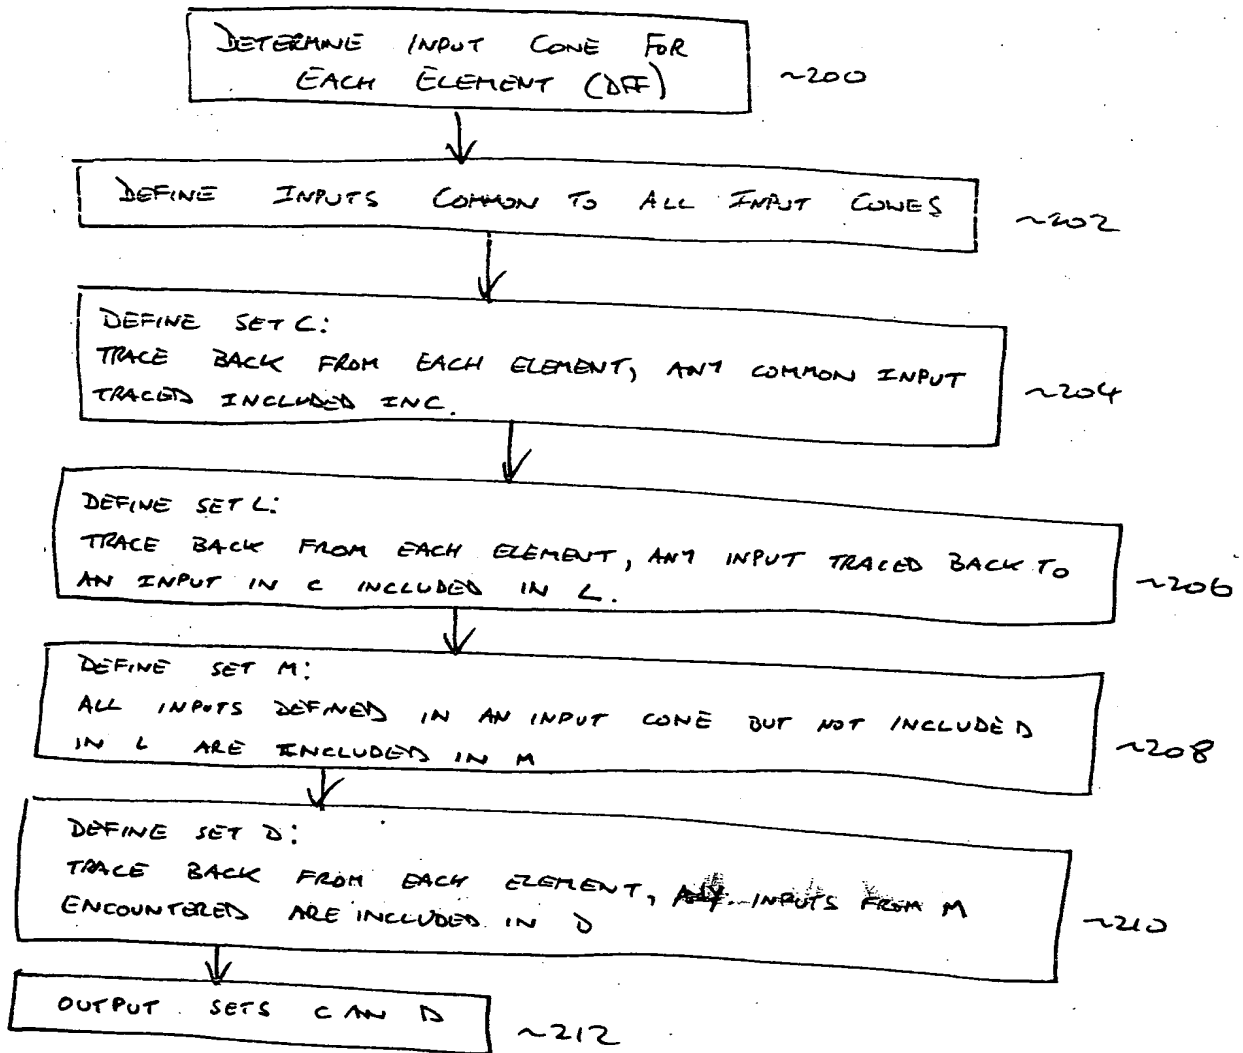 DETERMINE INPUT CONE FOR
EACH ELEMENT (DFF)
~200
DEFINE INPUTS COMMON TO ALL INPUT CONES
~202
DEFINE SET C:
TRACE BACK FROM EACH ELEMENT, ANY COMMON INPUT
TRACED INCLUDED IN C.
~204
DEFINE SET L:
TRACE BACK FROM EACH ELEMENT, ANY INPUT TRACED BACK TO
AN INPUT IN C INCLUDED IN L.
~206
DEFINE SET M:
ALL INPUTS DEFINED IN AN INPUT CONE BUT NOT INCLUDED
IN L ARE INCLUDED IN M
~208
DEFINE SET D:
TRACE BACK FROM EACH ELEMENT, ANY INPUTS FROM M
ENCOUNTERED ARE INCLUDED IN D
~210
OUTPUT SETS C AN D
~212